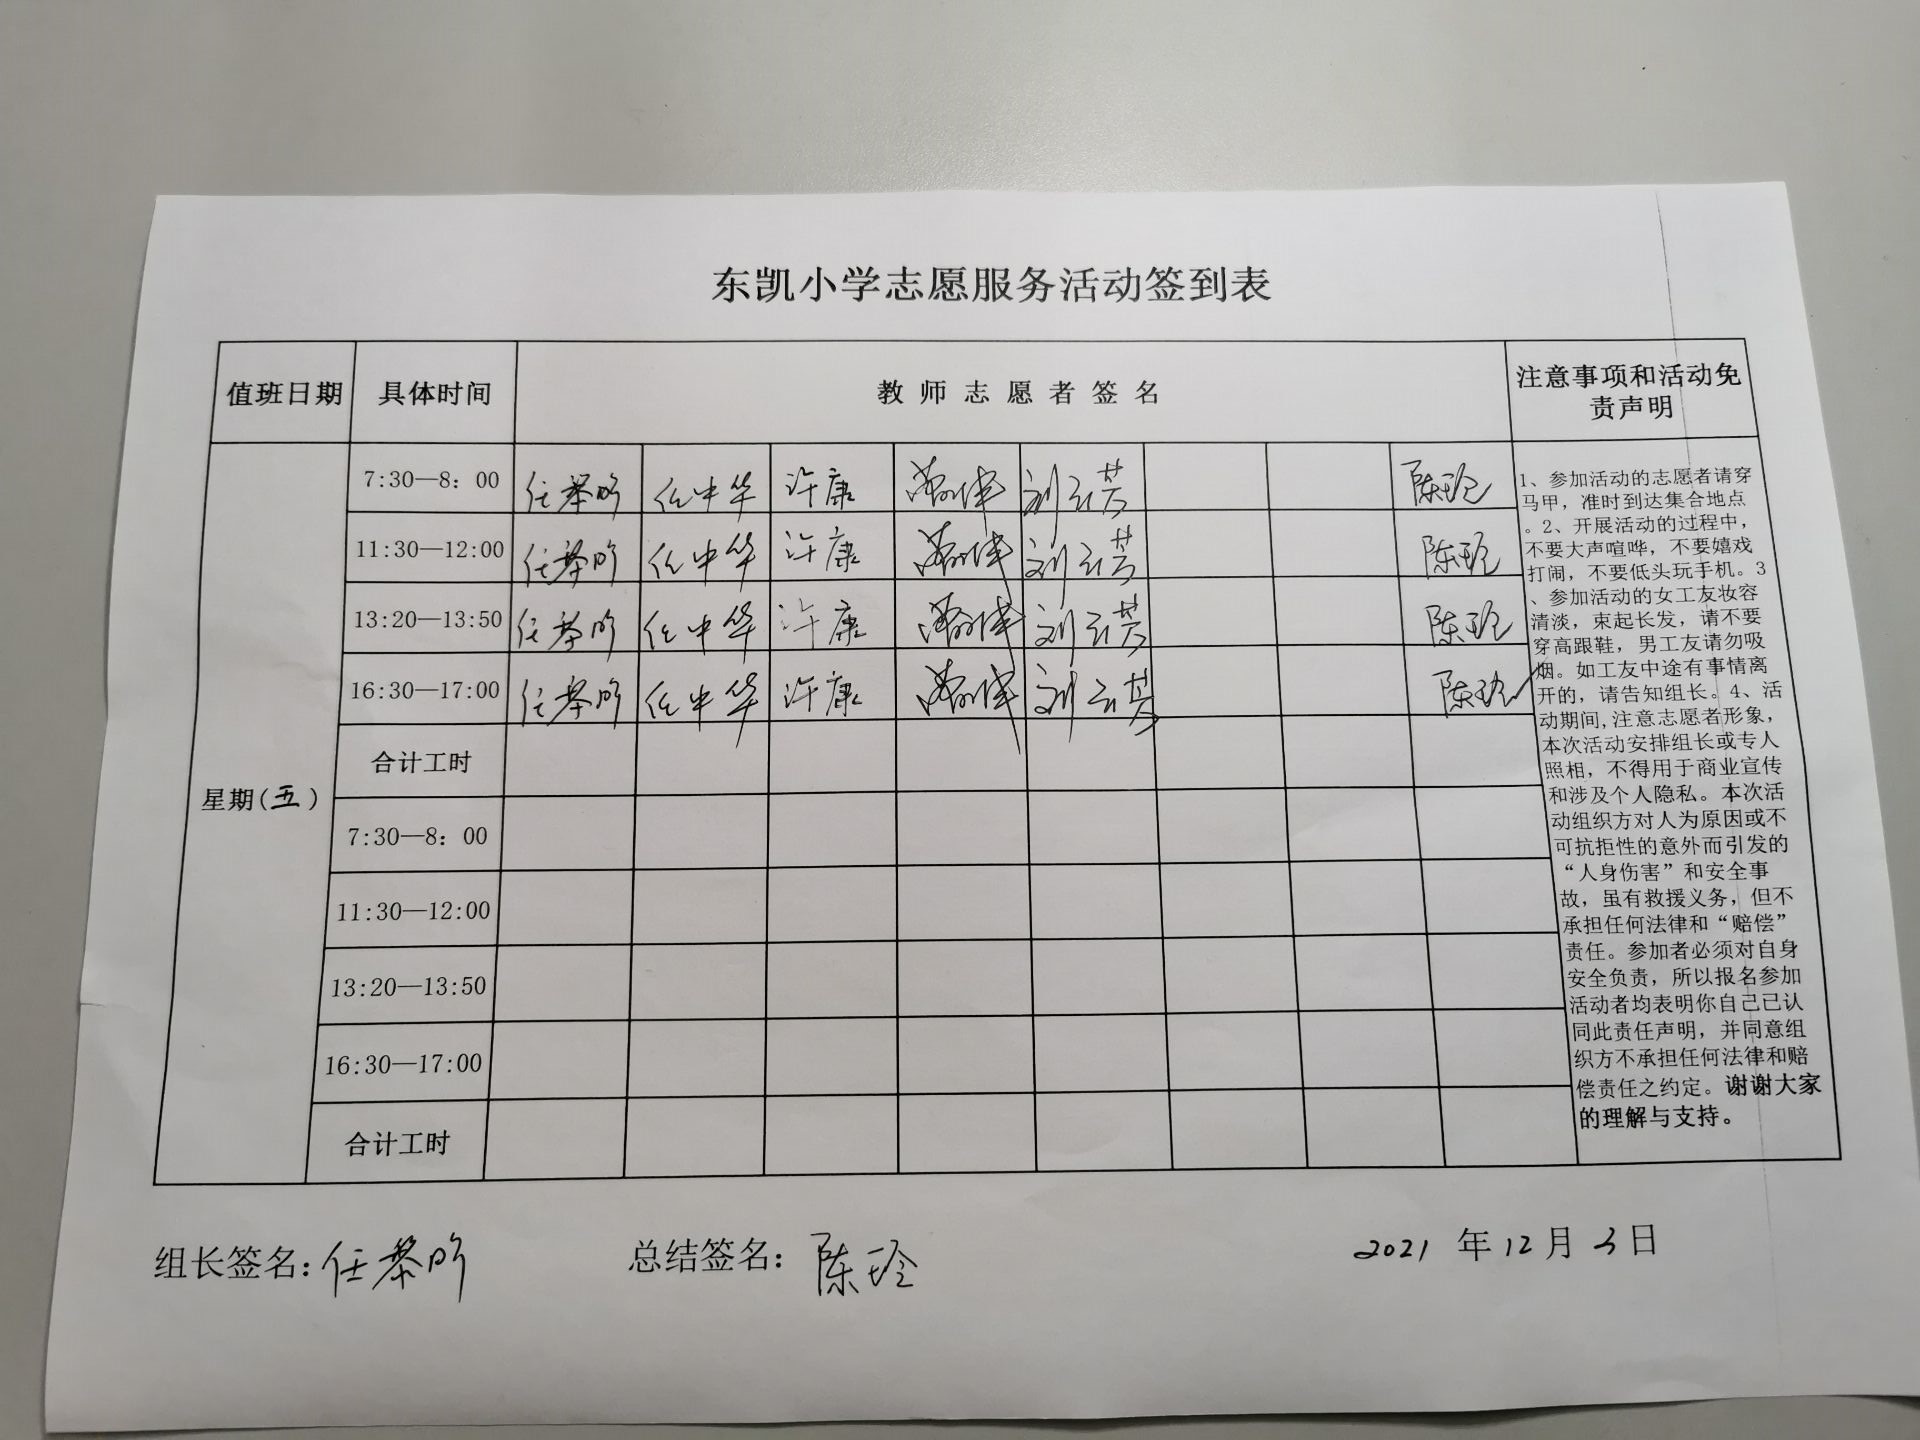 东凯小学志愿服务活动签到表
值班日期 具体时间 教师志愿者签名 注意事项和活动免
责声明
7:30—8：00 任黎昕 任中华 许康 刘云芳 陈玲
11:30—12:00 任黎昕 任中华 许康 刘云芳 陈玲
13:20—13:50 任黎昕 任中华 许康 刘云芳 陈玲
16:30—17:00 任黎昕 任中华 许康 刘云芳 陈玲
合计工时
星期(五)
7:30—8：00
11:30—12:00
13:20—13:50
16:30—17:00
合计工时
1、参加活动的志愿者请穿
马甲，准时到达集合地点
。2、开展活动的过程中，
不要大声喧哗，不要嬉戏
打闹，不要低头玩手机。3
、参加活动的女工友妆容
清淡，束起长发，请不要
穿高跟鞋，男工友请勿吸
烟。如工友中途有事情离
开的，请告知组长。4、活
动期间,注意志愿者形象，
本次活动安排组长或专人
照相，不得用于商业宣传
和涉及个人隐私。本次活
动组织方对人为原因或不
可抗拒性的意外而引发的
“人身伤害”和安全事
故，虽有救援义务，但不
承担任何法律和“赔偿”
责任。参加者必须对自身
安全负责，所以报名参加
活动者均表明你自己已认
同此责任声明，并同意组
织方不承担任何法律和赔
偿责任之约定。谢谢大家
的理解与支持。
组长签名：任黎昕 总结签名：陈玲 2021 年 12 月 3 日